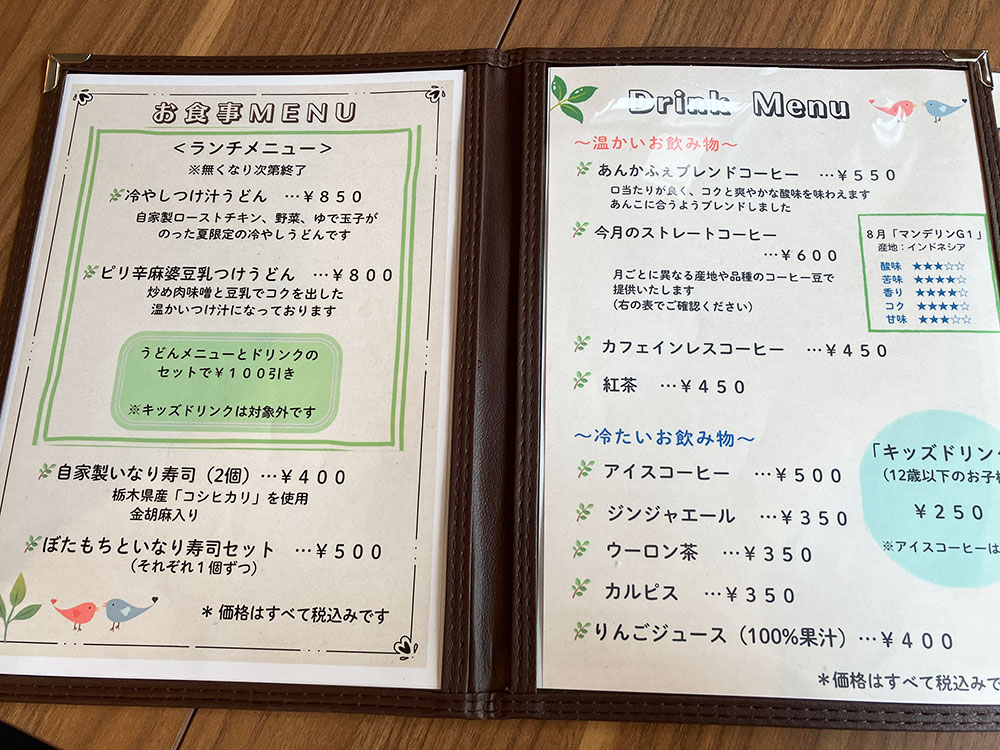 お食事MENU
＜ランチメニュー＞
※無くなり次第終了
冷やしつけ汁うどん …￥８５０
自家製ローストチキン、野菜、ゆで玉子が
のった夏限定の冷やしうどんです
ピリ辛麻婆豆乳つけうどん …￥８００
炒め肉味噌と豆乳でコクを出した
温かいつけ汁になっております
うどんメニューとドリンクの
セットで￥１００引き
※キッズドリンクは対象外です
自家製いなり寿司（2個）…￥４００
栃木県産「コシヒカリ」を使用
金胡麻入り
ぼたもちといなり寿司セット …￥５００
（それぞれ１個ずつ）
＊価格はすべて税込みです
Drink Menu
～温かいお飲み物～
あんかふぇブレンドコーヒー …￥５５０
口当たりが良く、コクと爽やかな酸味を味わえます
あんこに合うようブレンドしました
今月のストレートコーヒー
…￥６００
月ごとに異なる産地や品種のコーヒー豆で
提供いたします
（右の表でご確認ください）
８月「マンデリンG１」
産地：インドネシア
酸味 ★★★☆☆
苦味 ★★★★☆
香り ★★★★☆
コク ★★★★☆
甘味 ★★★☆☆
カフェインレスコーヒー …￥４５０
紅茶 …￥４５０
～冷たいお飲み物～
アイスコーヒー …￥５００
ジンジャエール …￥３５０
ウーロン茶 …￥３５０
カルピス …￥３５０
りんごジュース（100%果汁）…￥４００
「キッズドリン
（12歳以下のお子
￥２５０
※アイスコーヒーは
＊価格はすべて税込みで